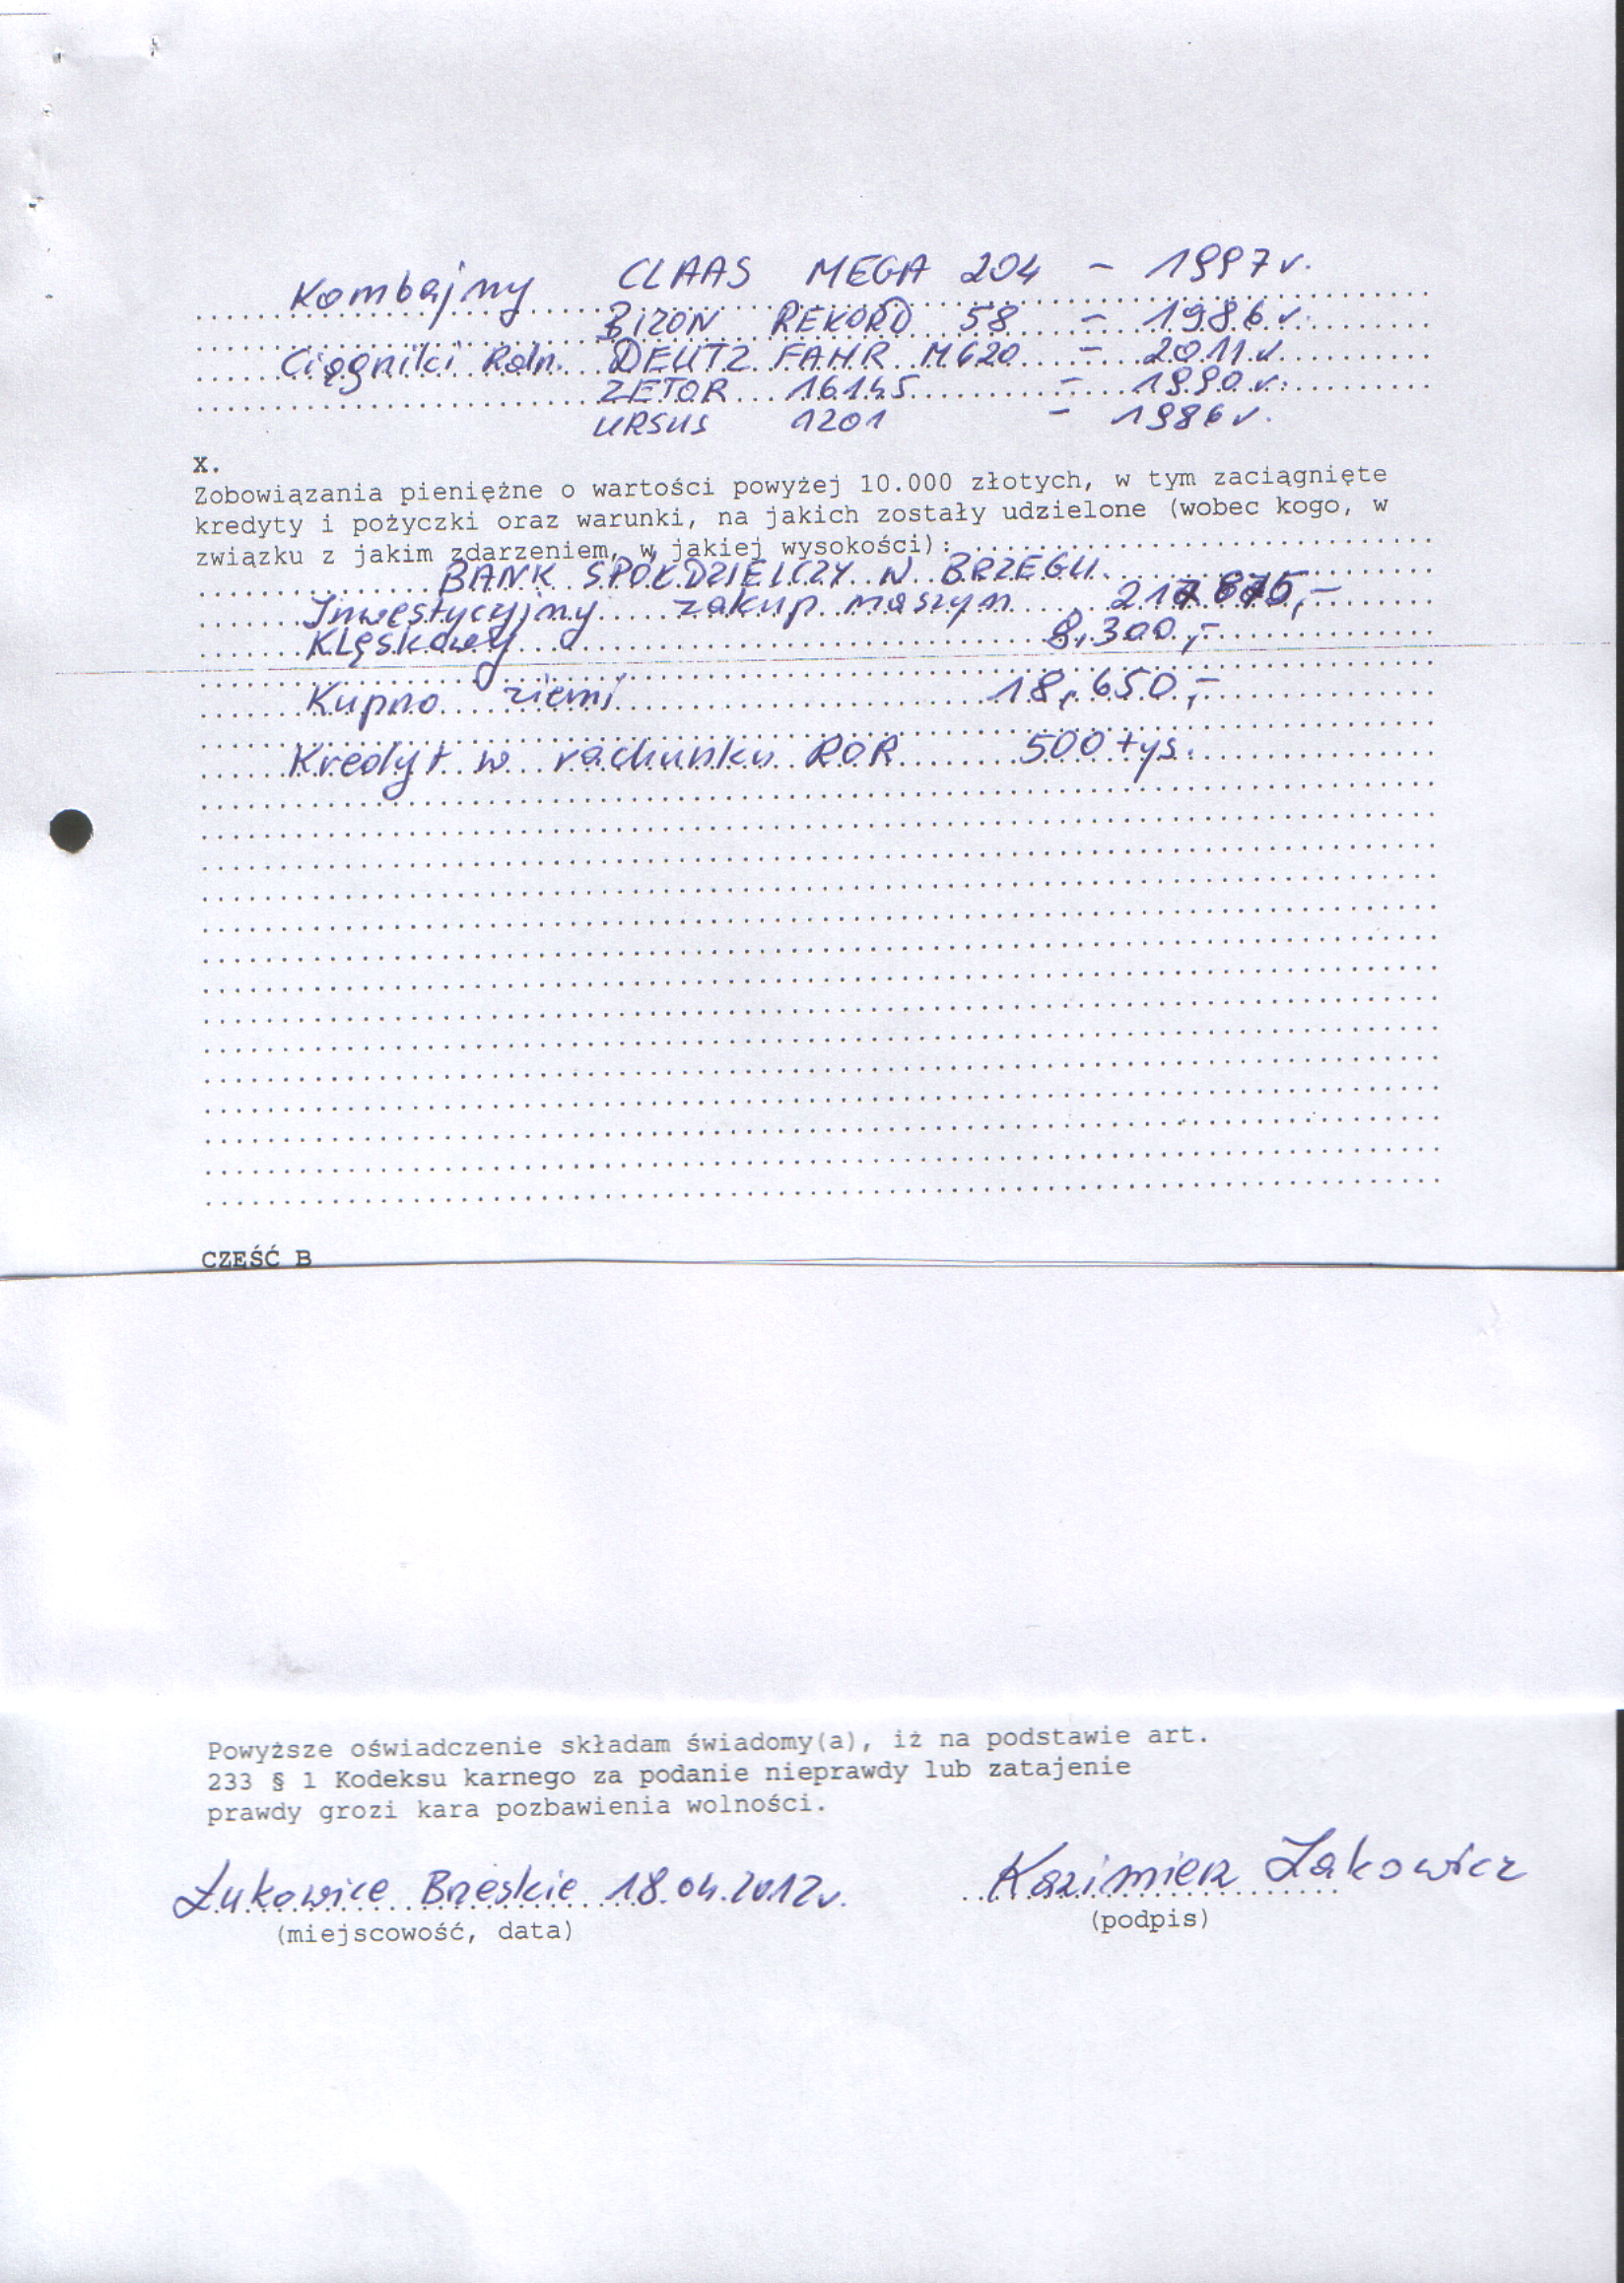 Kombajny CLAAS MEGA 204 - 1997 r.
BIZON REKORD 58 - 1986 r.
Ciągniki Roln. DEUTZ FAHR M620 - 2011 r.
ZETOR 16145 - 1990 r.
URSUS 1201 - 1986 r.
X.
Zobowiązania pieniężne o wartości powyżej 10.000 złotych, w tym zaciągnięte
kredyty i pożyczki oraz warunki, na jakich zostały udzielone (wobec kogo, w
związku z jakim zdarzeniem, w jakiej wysokości):
BANK SPÓŁDZIELCZY W BRZEGU
Inwestycyjny zakup maszyn
Klęskowy 8,300,-
Kupno ziemi 18,650,-
Kredyt w rachunku ROR 500 tys.
CZĘŚĆ B
Powyższe oświadczenie składam świadomy(a), iż na podstawie art.
233 § 1 Kodeksu karnego za podanie nieprawdy lub zatajenie
prawdy grozi kara pozbawienia wolności.
Łukowice Brzeskie 18.04.2012r. Kazimierz Żakowicz
(miejscowość, data) (podpis)